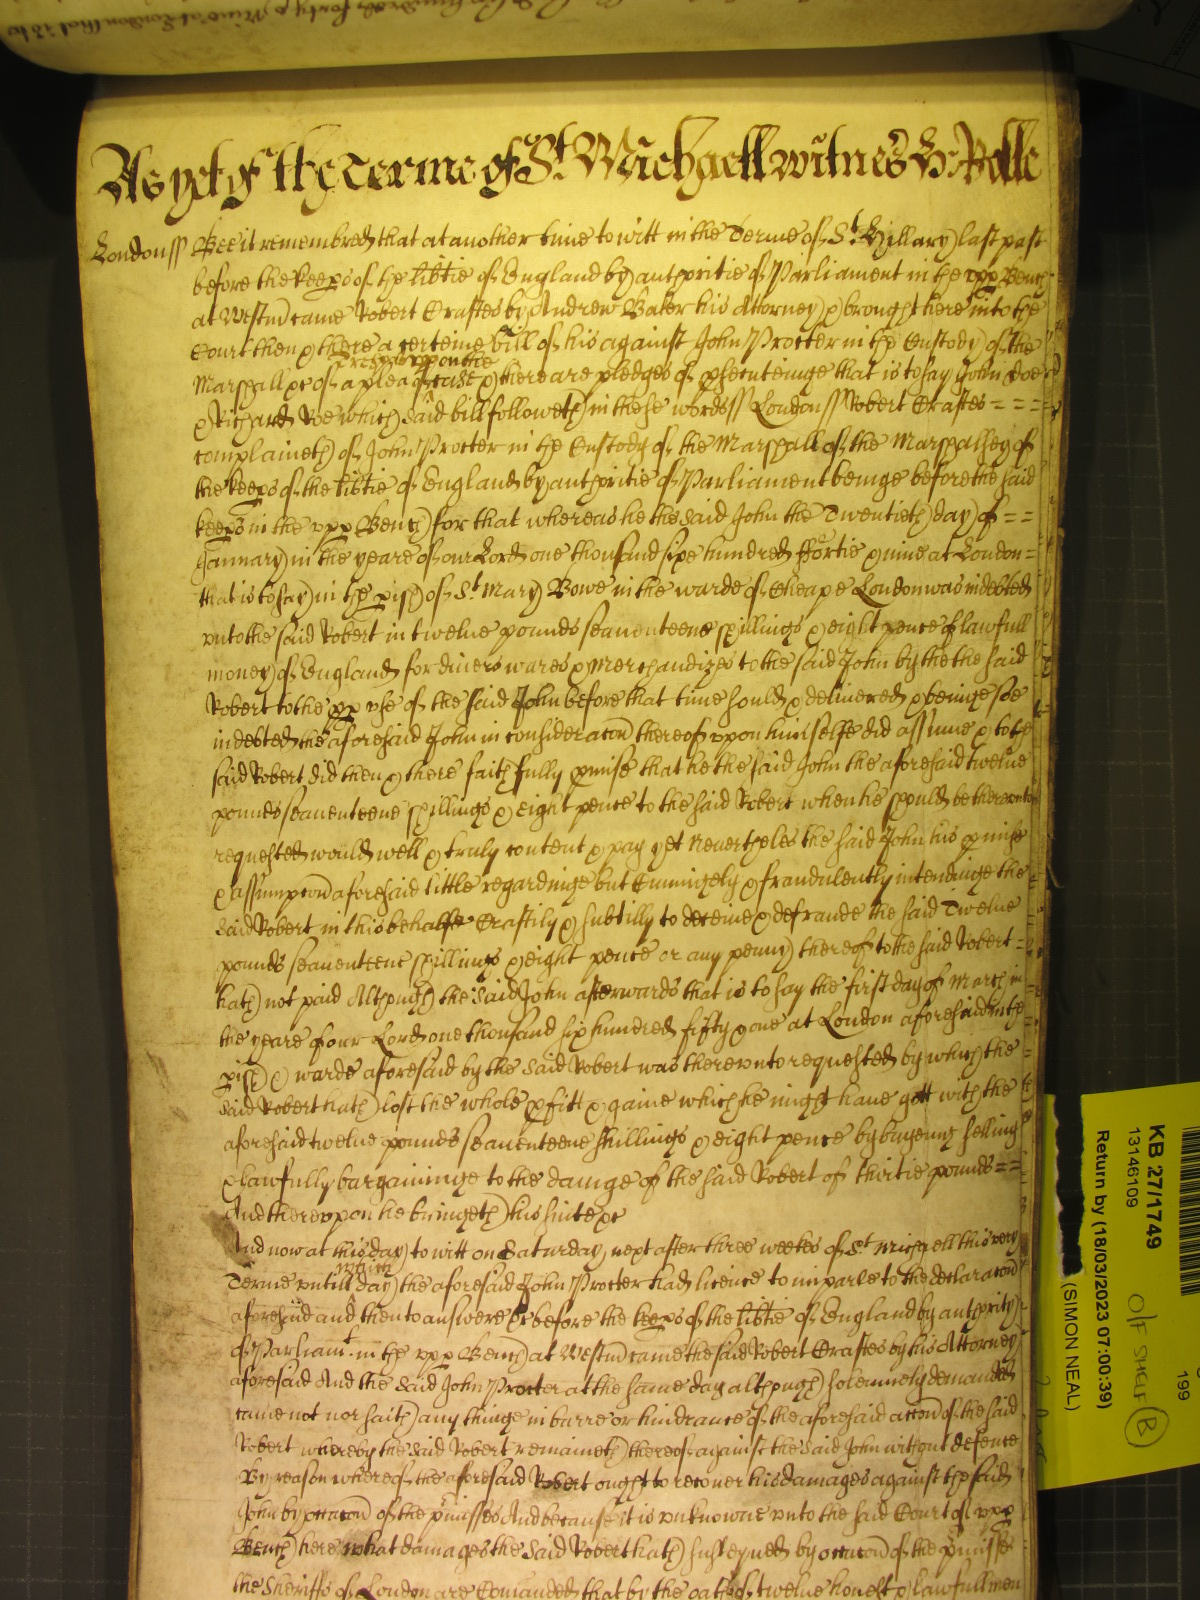 As yet of the Terme of St. Michaell witnes H: Rolle
London ss Bee it remembred that at another time to witt in the Terme of St. Hillary last past
before the keeps of the libtie of England by authoritie of Parliament in the upp Bench
at Westm̄ came Robert Crastes by Andrew Baker his Attorney & brought here into the
Court then & there a certeine bill of his against John Procter in the Custody of the
trespas uppon the
Marshall &c of a plea of case & there are pledges of psecuteinge that is to say John Doe
& Richard Roe which said bill followeth in these words ss London ss Robert Crastes = = =
complaineth of John Procter in the Custody of the Marshall of the Marshalsey of
the keeps of the libtie of England by authoritie of Parliament beinge before the said
keeps in the upp Bench for that whereas he the said John the Twentieth day of = =
January in the yeare of our Lord one thousand sixe hundred ffortie & nine at London =
that is to say in the pish of St. Mary Bowe in the warde of Cheape London was indebted
unto the said Robert in twelue pounds seauenteene shillings & eight pence of lawfull
money of England for divers wares & merchandizes to the said John by the the said
Robert to the pp use of the said John before that time sould & delivered & beinge soe
indebted the aforesaid John in consideracōn thereof uppon himselfe did assume & to the
said Robert did then & there faithfully pmise that he the said John the aforesaid twelue
pounds seauenteene shillings & eight pence to the said Robert when he should be thereunto
requested would well & truly content & pay yet Neuertheles the said John his pmise
& assumpcōn aforesaid little regardinge but Cunningely & fraudulently intendinge the
said Robert in this behalfe Craftily & subtilly to deceiue & defraude the said Twelue
pounds seauenteene shillings & eight pence or any penny thereof to the said Robert =
hath not paid Although the said John afterwards that is to say the first day of March in
the yeare of our Lord one thousand six hundred fifty & one at London aforesaid in the
pish & warde aforesaid by the said Robert was thereunto requested by which the
said Robert hath lost the whole pfitt & gaine which he might haue gott with the
aforesaid twelue pounds seauenteene shillings & eight pence by buyeing selling
& lawfully bargaininge to the damage of the said Robert of thirtie pounds = =
And thereuppon he bringeth his suite &c
And now at this day to witt on Saturday next after three weekes of St. Michaell this very
which
Terme untill day the aforesaid John Procter had licence to imparle to the declaracōn
aforesaid and then to answere &c before the keeps of the libtie of England by authority
of Parliamt. in the upp Bench at Westm̄ came the said Robert Crastes by his Attorney
aforesaid And the said John Procter at the same day although solemnely demanded
came not nor saith any thinge in barre or hindrance of the aforesaid accōn of the said
Robert whereby the said Robert remaineth thereof against the said John without defence
By reason whereof the aforesaid Robert ought to recouer his damages against the said
John by occacōn of the pmisses And because it is unknowne unto the said Court of upp
Bench here what damages the said Robert hath susteyned by occacōn of the pmisses
the Sheriffs of London are Comanded that by the oath of twelue honest & lawfull men
KB 27/1749
13146109
Return by (18/03/2023 07:00:39)
(SIMON NEAL)
O/F SHELF B
199